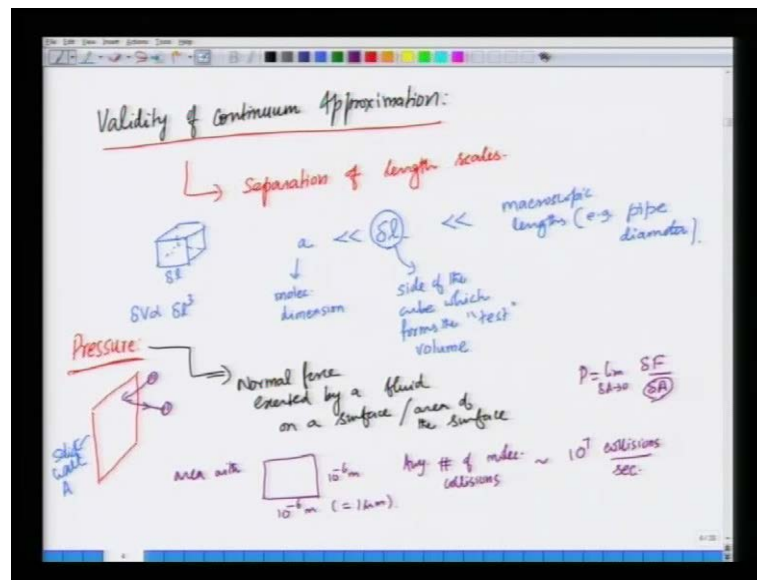 File Edit View Insert Actions Tools Help
Validity of continuum Approximation:
Separation of length scales.
a << δl << macroscopic
lengths (e.g. pipe
diameter).
δl
δV α δl³
molec.
dimension
side of the
cube which
forms the "test"
volume
Pressure:
Normal force
exerted by a fluid
on a surface / area of
the surface
P = lim δF / δA
δA→0
wall
A
area with
10⁻⁶ m
10⁻⁶ m (= 1 μm).
Avg # of molec.
collisions
~ 10⁷ collisions
sec.